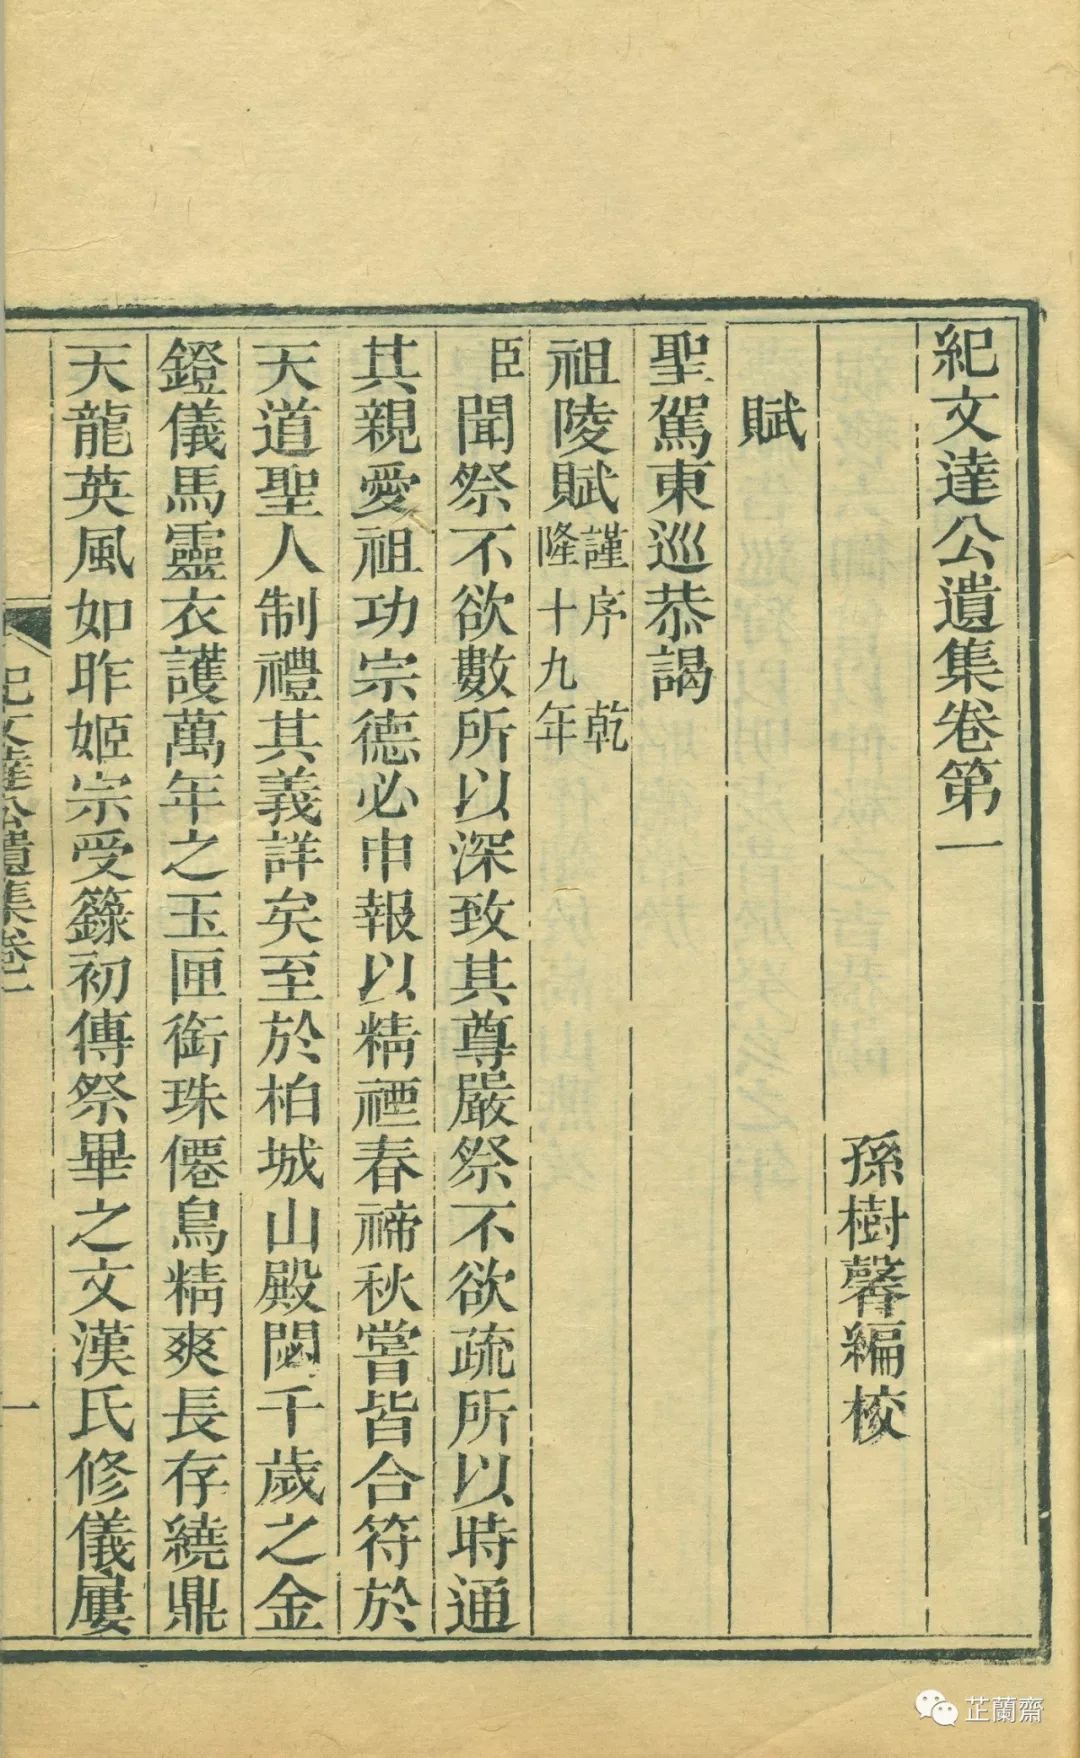 紀文達公遺集卷第一
孫樹馨編校
賦
聖駕東巡恭謁
祖陵賦謹序 乾
隆十九年
臣聞祭不欲數所以深致其尊嚴祭不欲疏所以時通
其親愛祖功宗德必申報以精禋春禘秋嘗皆合符於
天道聖人制禮其義詳矣至於柏城山殿閟千歲之金
鐙儀馬靈衣護萬年之玉匣銜珠僊鳥精爽長存繞鼎
天龍英風如昨姬宗受籙初傳祭畢之文漢氏修儀屢
紀文達公遺集卷一
一
芷蘭齋